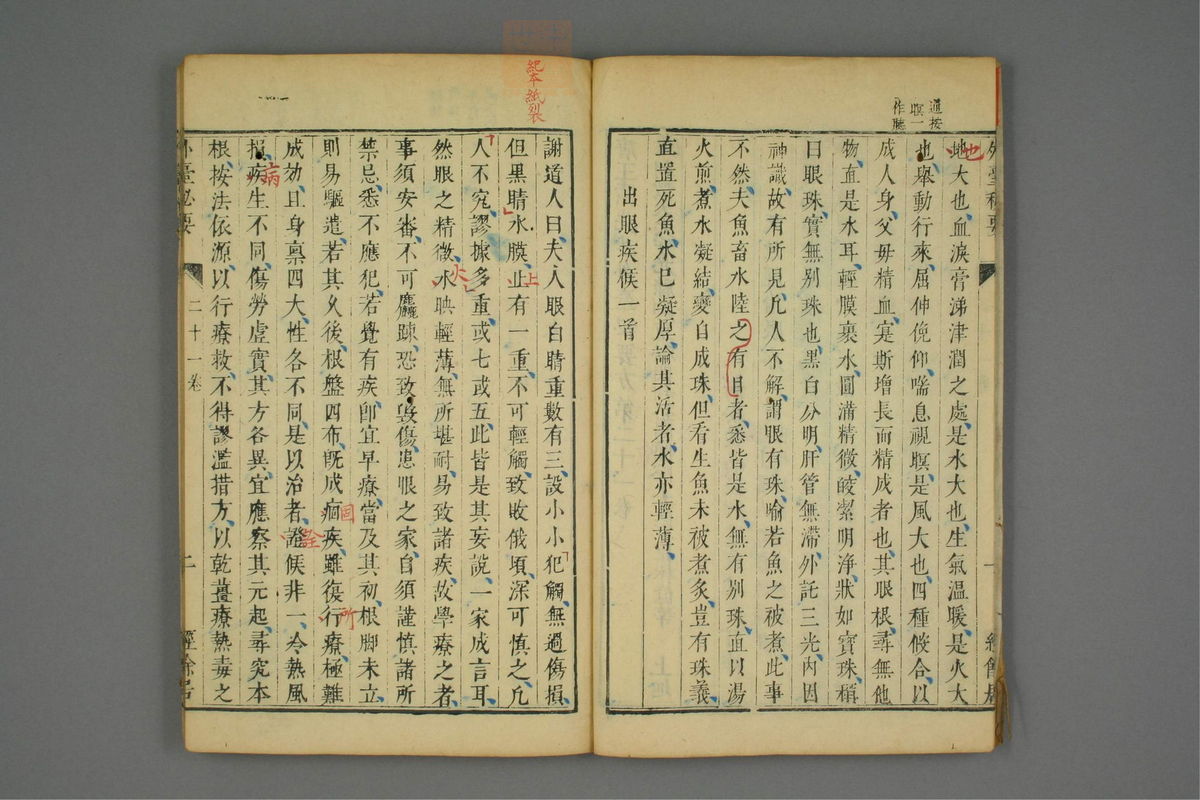 外臺秘要
一
經餘居
地大也血淚膏涕津潤之處是水大也生氣溫暖是火大
也舉動行來屈伸俛仰喘息視瞑是風大也四種假合以
成人身父母精血寔斯增長而精成者也其眼根尋無他
物直是水耳輕膜裹水圓滿精微皎潔明淨狀如寶珠稱
曰眼珠實無別珠也黑白分明肝管無滯外託三光內因
神識故有所見凡人不解謂眼有珠喻若魚之被煮此事
不然夫魚畜水陸之有目者悉皆是水無有別珠直以湯
火煎煮水凝結變自成珠但看生魚未被煮炙豈有珠義
直置死魚水已凝厚論其活者水亦輕薄
出眼疾候一首
通按
瞑一
作聽
地
紀本紙裂
謝道人曰夫人眼白睛重數有三設小小犯觸無過傷損
但黑睛水膜止有一重不可輕觸致敗俄頃深可慎之凡
人不究謬據多重或七或五此皆是其妄說一家成言耳
然眼之精微水映輕薄無所堪耐易致諸疾故學療之者
事須安審不可麤踈恐致毀傷患眼之家自須謹慎諸所
禁忌悉不應犯若覺有疾卽宜早療當及其初根脚未立
則易驅遣若其久後根盤四布旣成痼疾雖復行療極難
成効且身禀四大性各不同是以治者證候非一冷熱風
損疾生不同傷勞虛實其方各異宜應察其元起尋究本
根按法依源以行療救不得謬濫措方以乾薑療熱毒之
上
火
固
所
詮
病
外臺秘要
二十一卷
二
經餘居